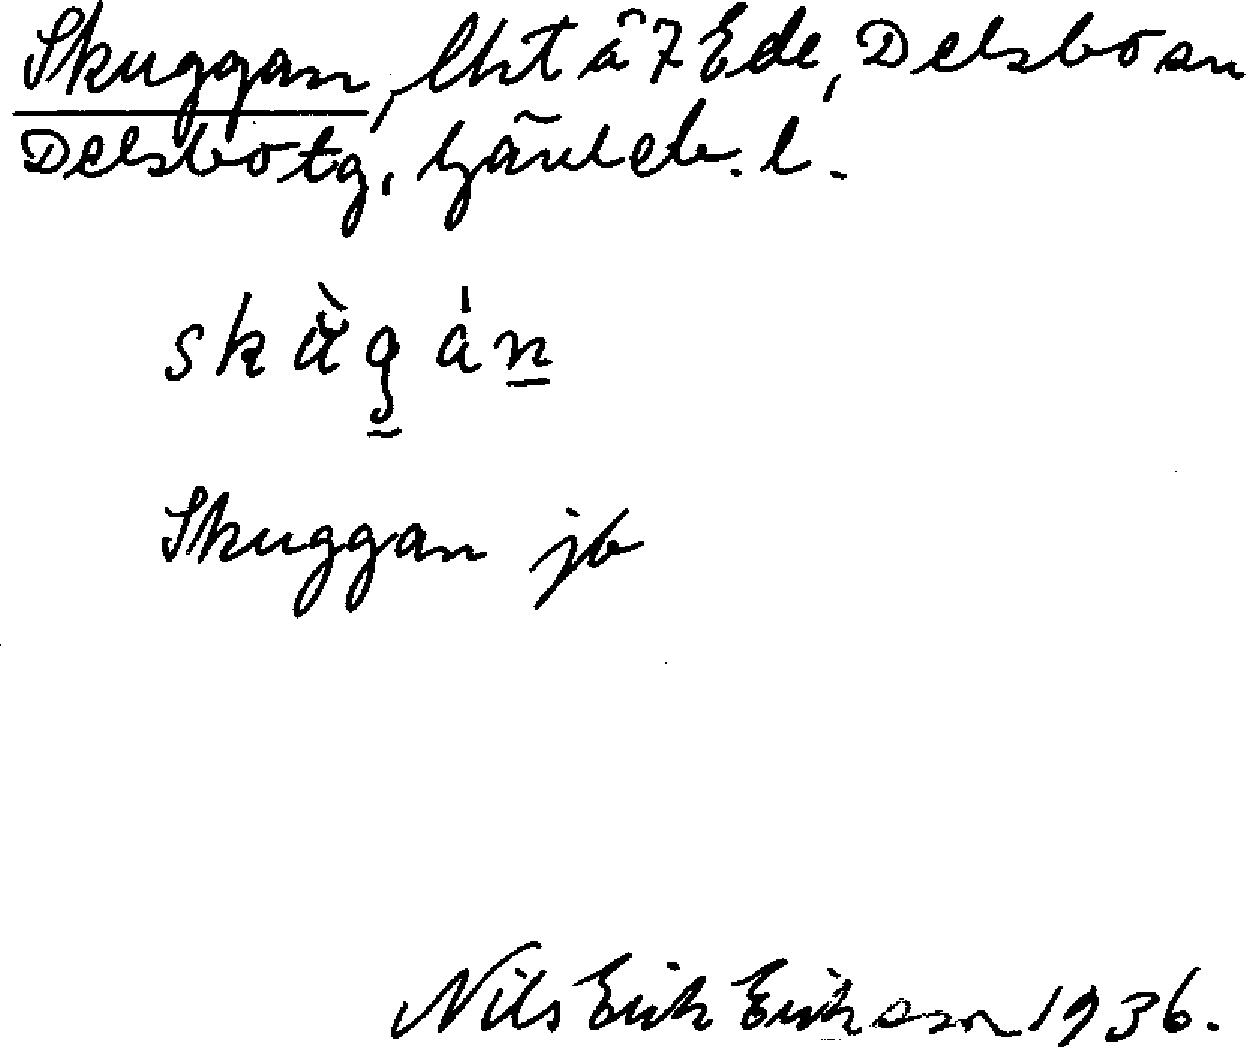 Skuggan, lht å 7 Ede, Delsbo sn
Delsbo tg, Gävleb. l.
Skuggan jb
Nils Erik Erikson 1936.